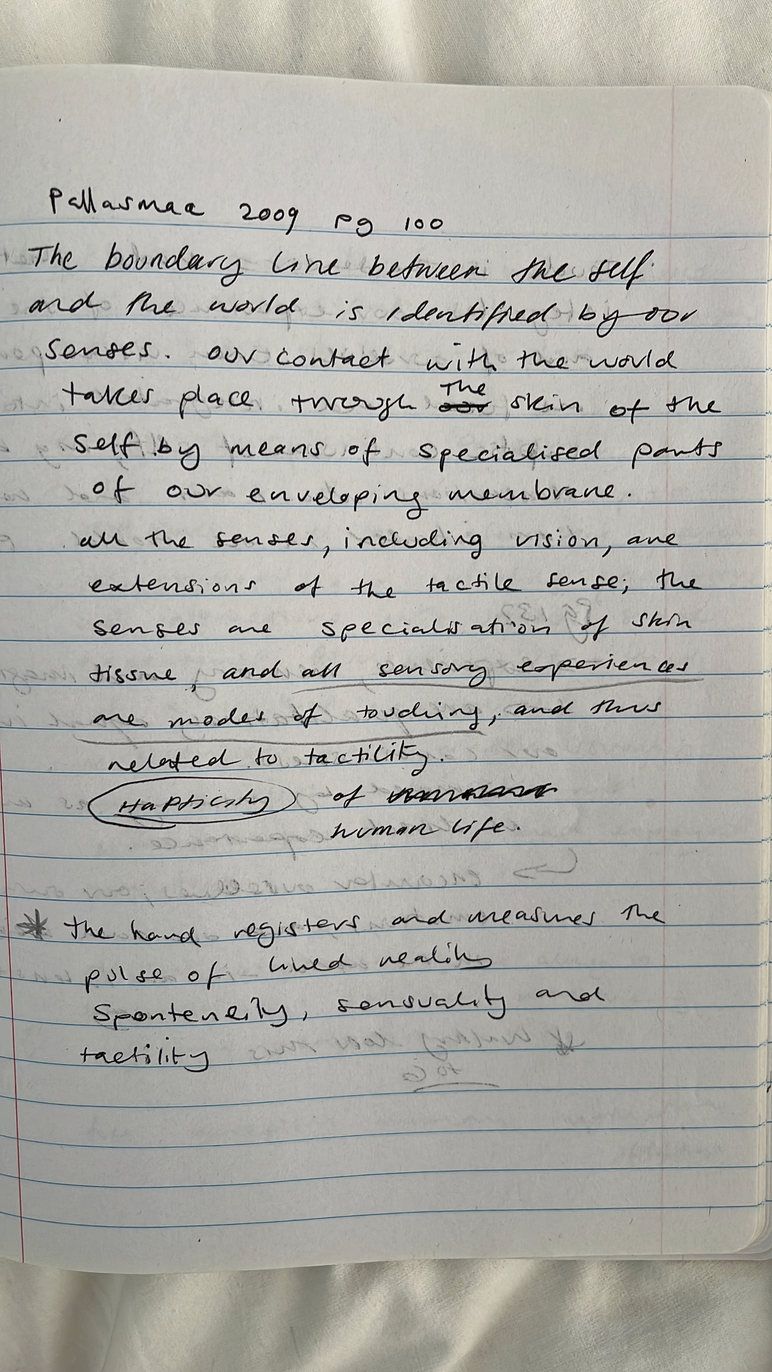 Pallasmaa 2009 pg 100
The boundary line between the self
and the world is identified by our
senses. our contact with the world
takes place through the skin of the
self by means of specialised parts
of our enveloping membrane.
all the senses, including vision, are
extensions of the tactile sense; the
senses are specialisation of skin
tissue, and all sensory experiences
are modes of touching, and thus
related to tactility.
Hapticity of
human life.
* the hand registers and measures the
pulse of lived reality
Sponteneity, sensuality and
tactility